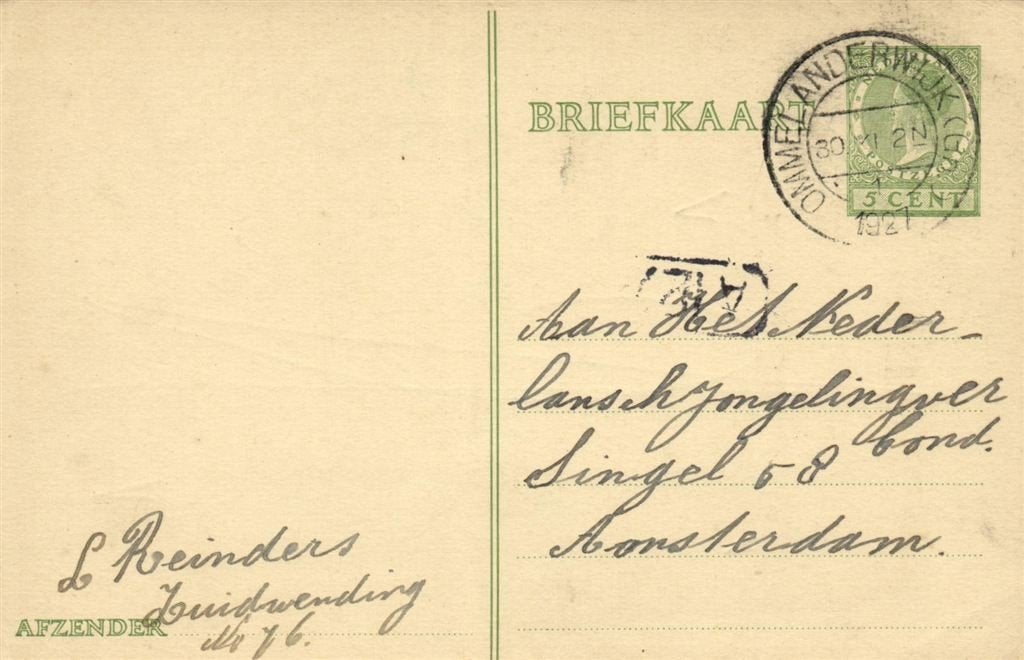 BRIEFKAART
OMMELANDERWIJK (GR)
30.XI 2N
1927
5 CENT
Aan Het Neder-
lansch Jongelingver
bond.
Singel 58
Amsterdam.
L Reinders
Zuidwending
AFZENDER
No 76.